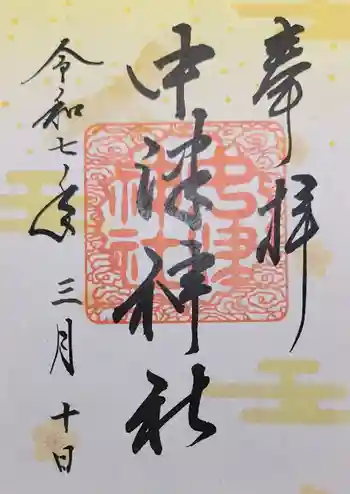 奉拝
中津神社
中津
神社
令和七年
三月十日